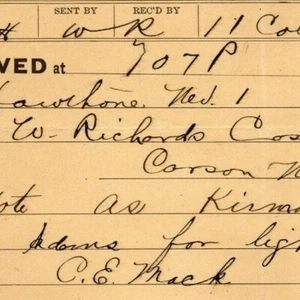 SENT BY REC'D BY
H W R 11 Col
VED at 707P
Hawthorne Nev. 1
W. Richards Cos
Carson N
Vote as Kirma
Adams for ligh
C. E. Mack